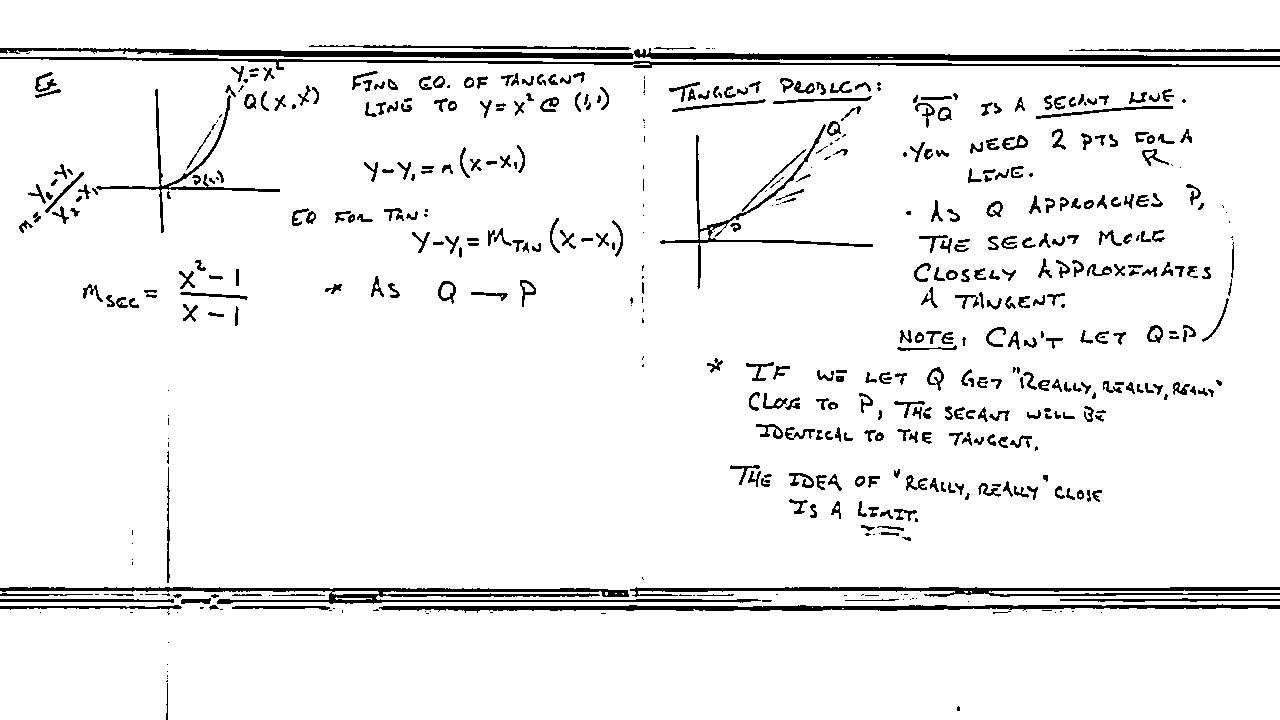 Ex
Y=X²
Q(X,X²)
P(1,1)
1
m=Y₂-Y₁/X₂-X₁
FIND EQ. OF TANGENT
LINE TO Y=X² @ (1,1)
Y-Y₁=m(X-X₁)
EQ FOR TAN:
Y-Y₁=M_TAN(X-X₁)
M_SEC = X²-1/X-1
* AS Q → P
TANGENT PROBLEM:
Q
P
"PQ" IS A SECANT LINE.
·YOU NEED 2 PTS FOR A
LINE.
· AS Q APPROACHES P,
THE SECANT MORE
CLOSELY APPROXIMATES
A TANGENT.
NOTE: CAN'T LET Q=P
* IF WE LET Q GET "REALLY, REALLY, REALLY"
CLOSE TO P, THE SECANT WILL BE
IDENTICAL TO THE TANGENT.
THE IDEA OF "REALLY, REALLY" CLOSE
IS A LIMIT.